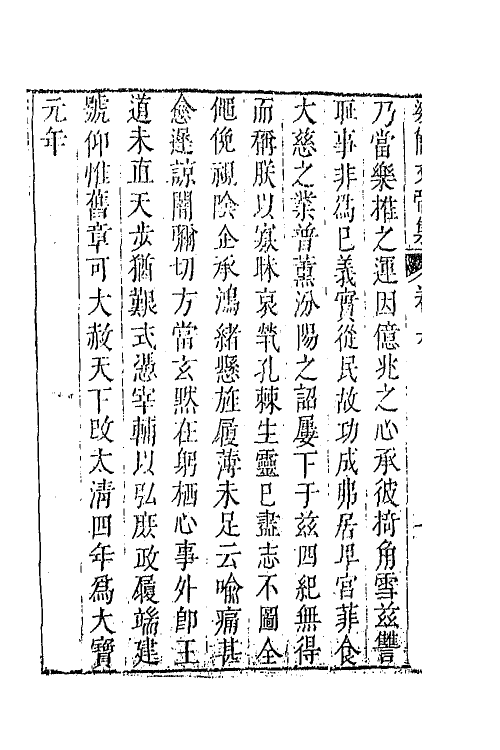 梁簡文帝集 卷之
乃當樂推之運因億兆之心承彼掎角雪茲讐
恥事非為已義實從民故功成弗居卑宮菲食
大慈之業普薰汾陽之詔屢下于茲四紀無得
而稱朕以寡昧哀煢孔棘生靈已盡志不圖全
僶俛視陰企承鴻緒懸旌履薄未足云喻痛甚
愈遲諒闇彌切方當玄默在躬栖心事外即王
道未直天步猶艱式憑宰輔以弘庶政履端建
號仰惟舊章可大赦天下改太清四年為大寶
元年